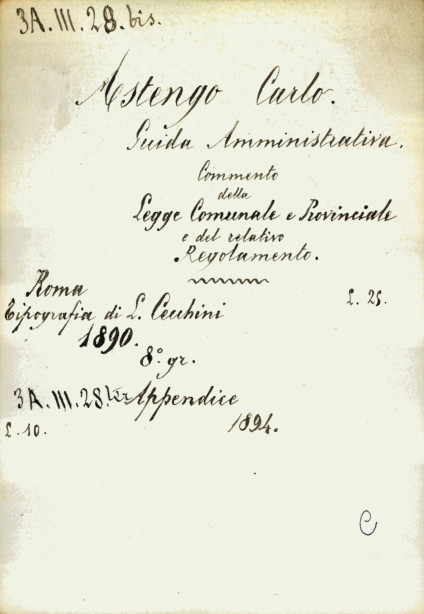 3A. III. 28. bis.
Astengo Carlo.
Guida Amministrativa.
Commento
della
Legge Comunale e Provinciale
e del relativo
Regolamento.
Roma
Tipografia di L. Cecchini
£. 25.
1890.
8.° gr.
3A. III. 28. ter Appendice
£. 10.
1894.
C